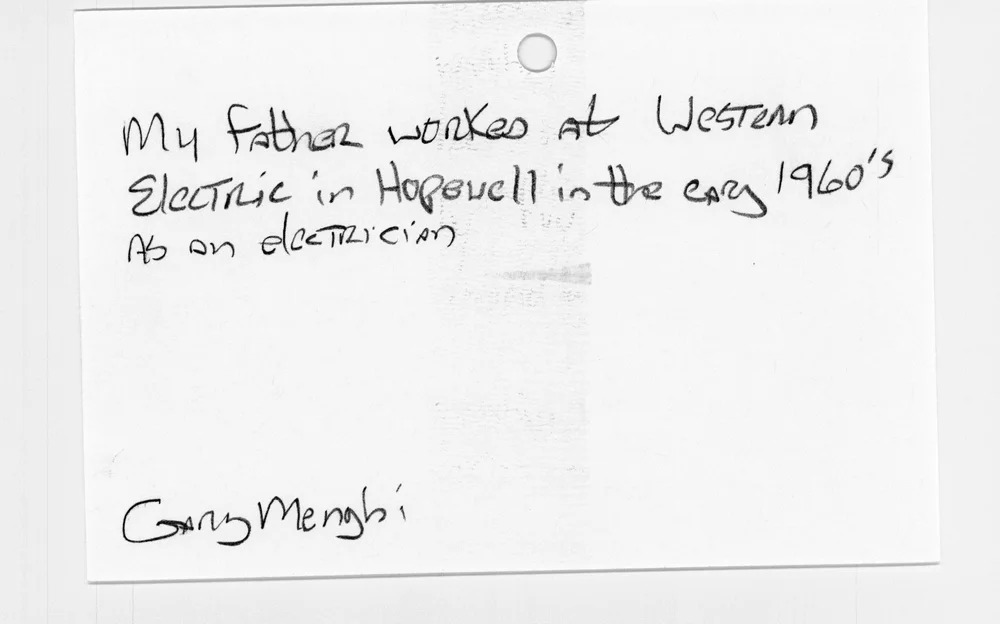 My father worked at Western
Electric in Hopewell in the eary 1960's
As an electrician
Gary Menghi